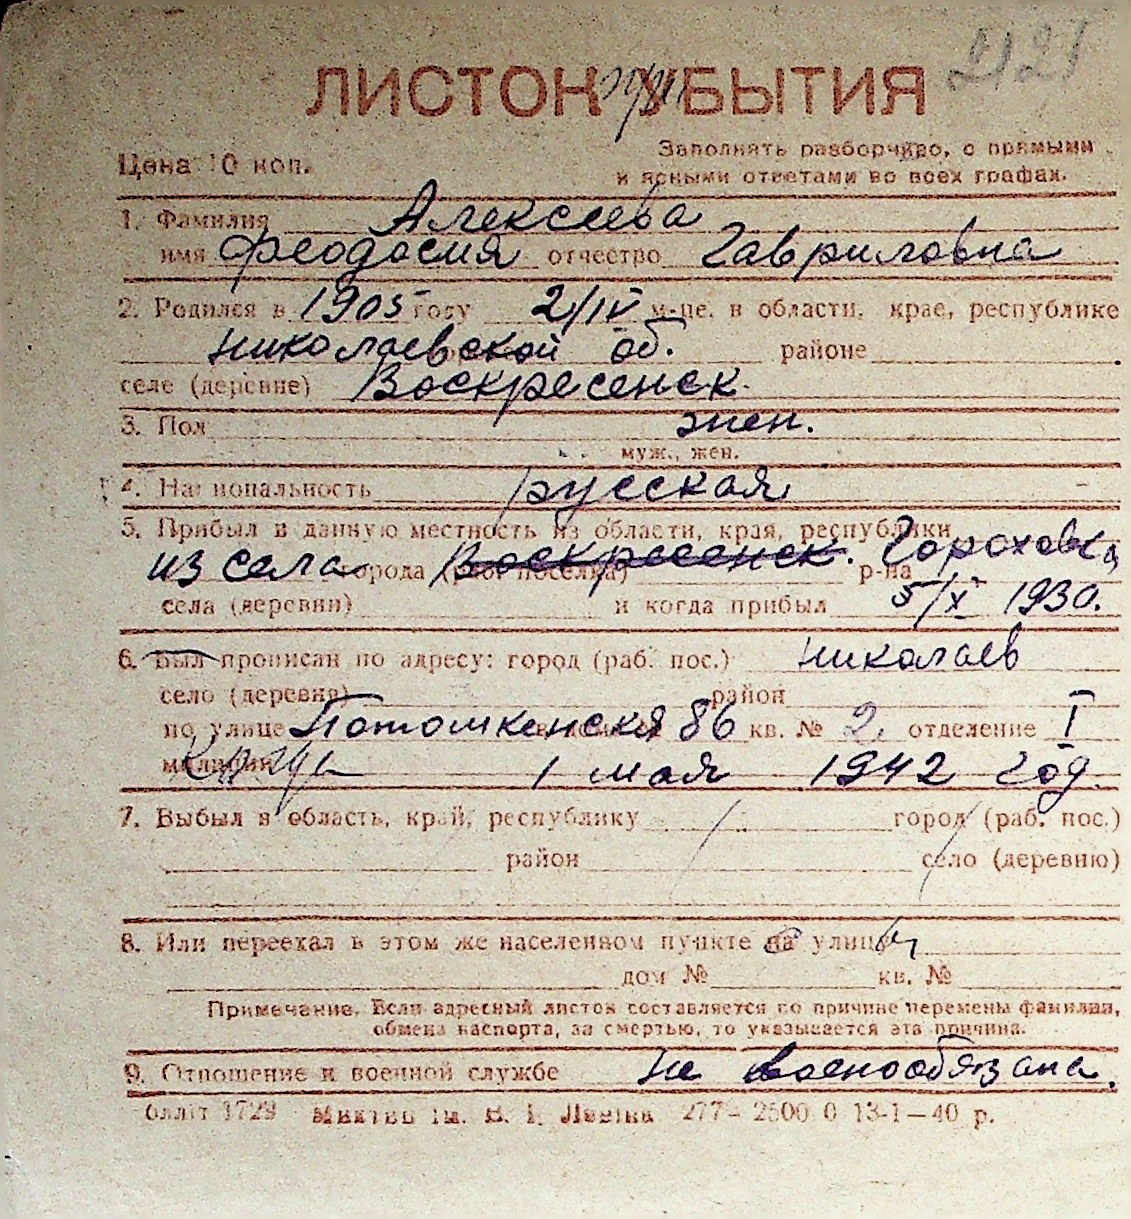 2121
ЛИСТОК УБЫТИЯ
Цена 10 коп.
Заполнять разборчиво, с прямыми
и ясными ответами во всех графах.
1. Фамилия Алексеева
имя Феодосия отчество Гавриловна
2. Родился в 1905 году 2/IV м-це, в области, крае, республике
Николаевской об. районе
селе (деревне) Воскресенск.
3. Пол жен.
муж., жен.
4. Национальность русская
5. Прибыл в данную местность из области, края, республики
из села города (раб. поселка) Воскресенск. Гороховка р-на
села (деревни) и когда прибыл 5/X 1930.
6. Был прописан по адресу: город (раб. пос.) Николаев
село (деревня) район
по улице Потомкенская 86 кв. № 2. отделение I
милиции 1 мая 1942 год.
7. Выбыл в область, край, республику город (раб. пос.)
район село (деревню)
8. Или переехал в этом же населенном пункте на улицу
дом № кв. №
Примечание. Если адресный листок составляется по причине перемены фамилии,
обмена паспорта, за смертью, то указывается эта причина.
9. Отношение к военной службе не военообязана.
1729 ім. В. І. Леніна 277—2500 0 13-1—40 р.